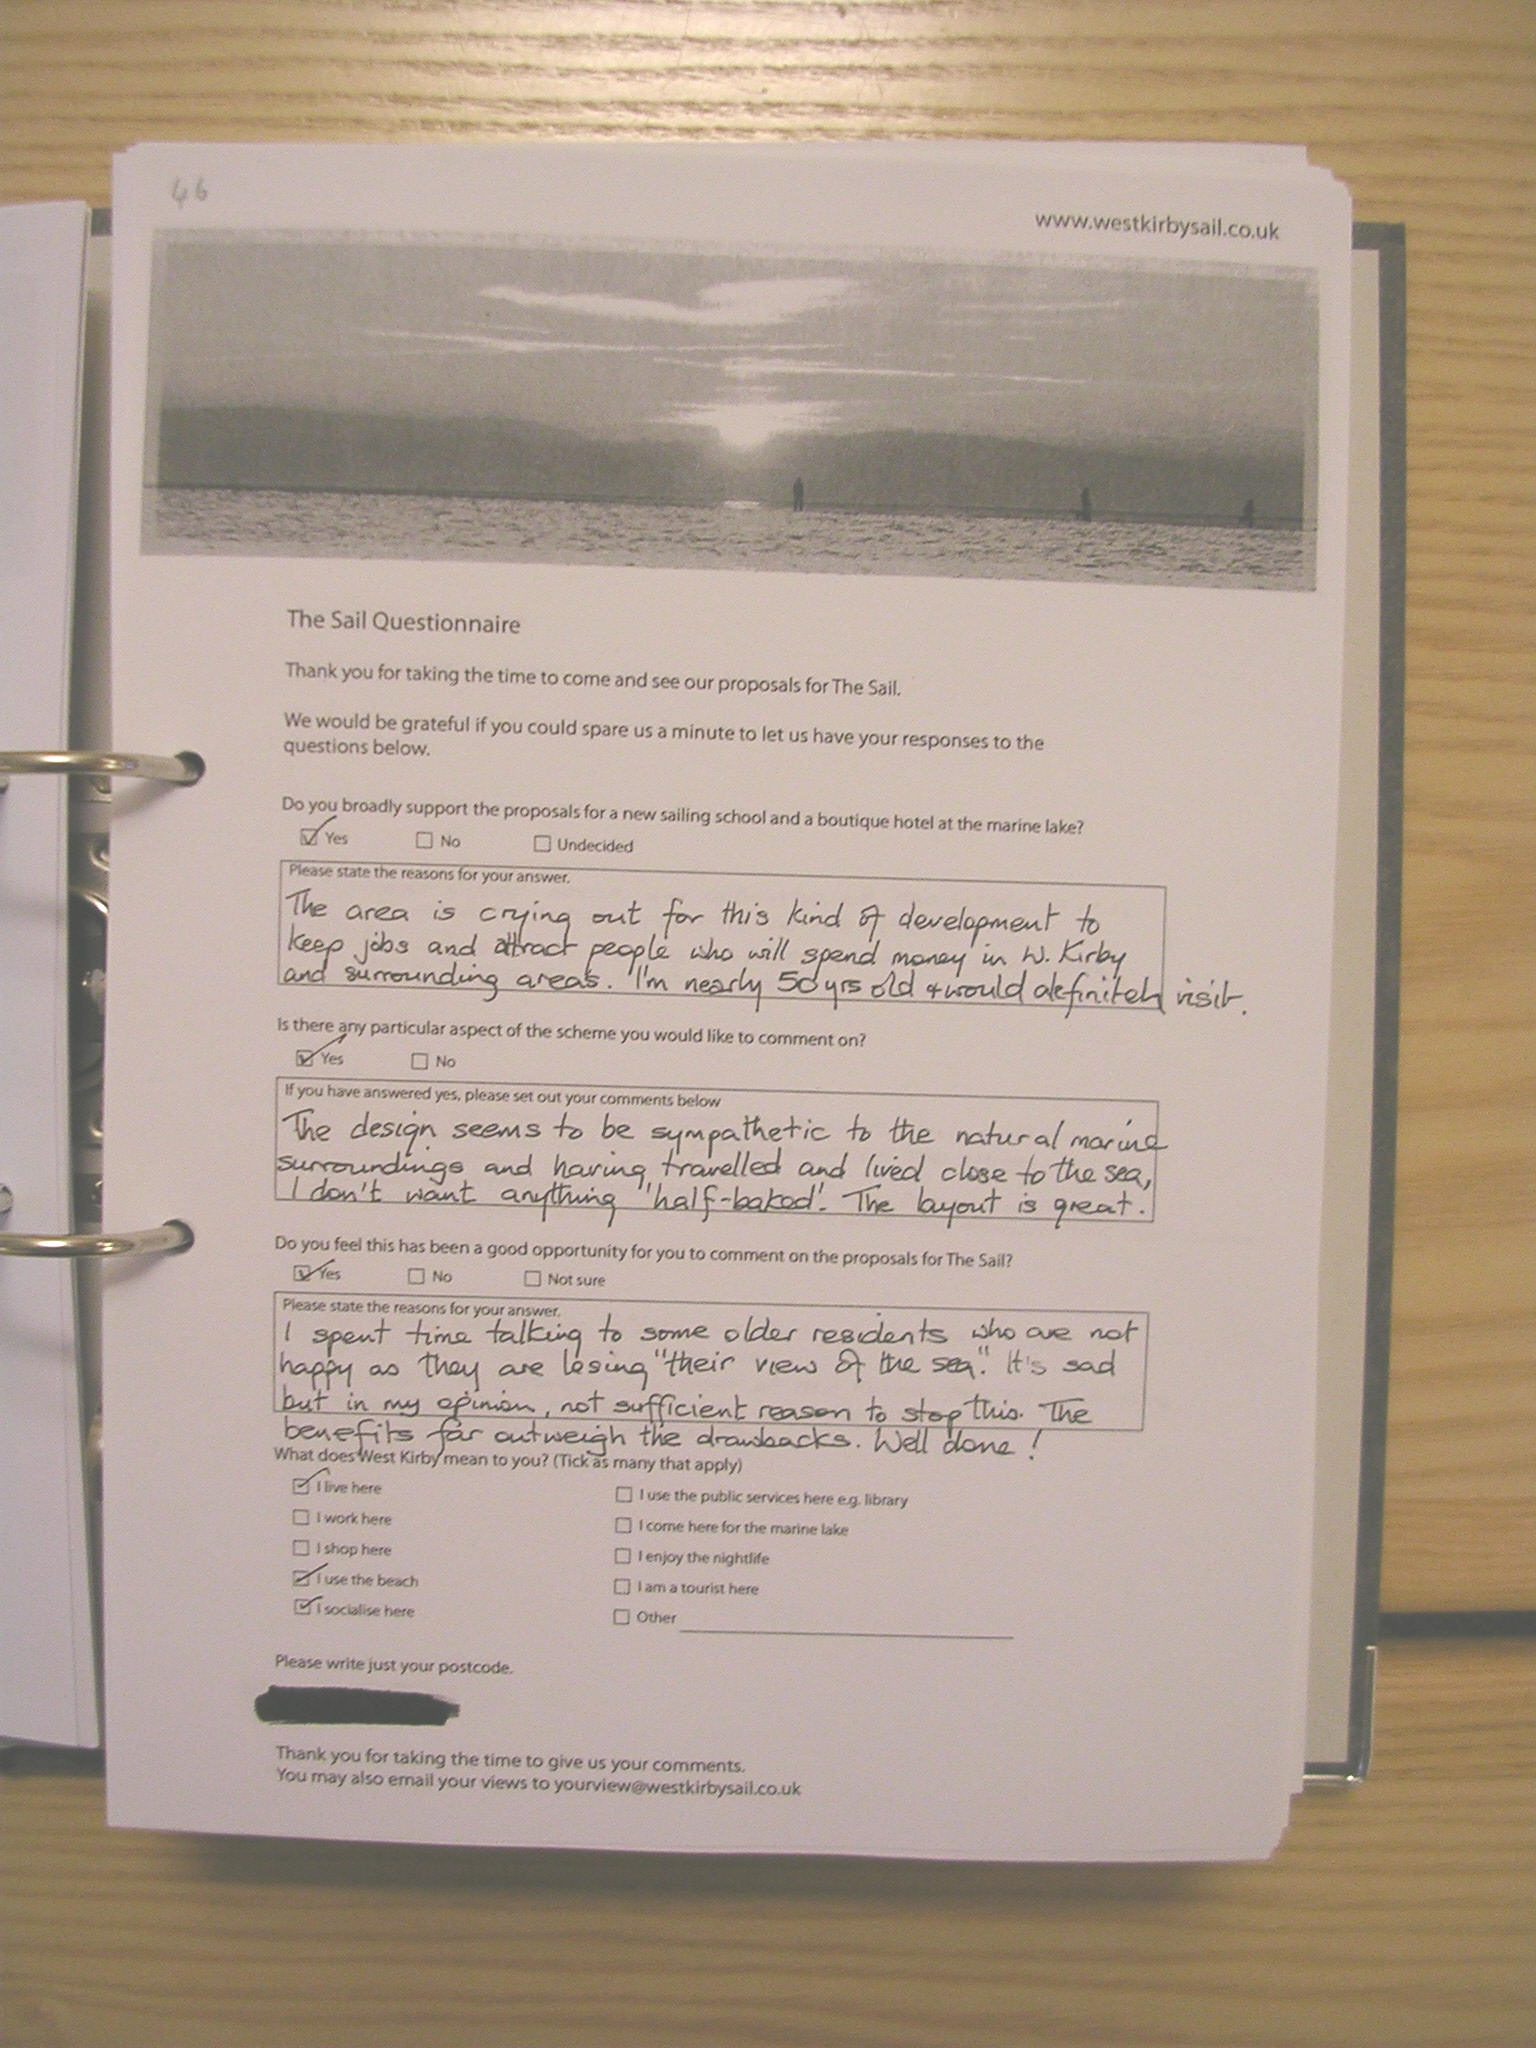 46
www.westkirbysail.co.uk
The Sail Questionnaire
Thank you for taking the time to come and see our proposals for The Sail.
We would be grateful if you could spare us a minute to let us have your responses to the
questions below.
Do you broadly support the proposals for a new sailing school and a boutique hotel at the marine lake?
Yes No Undecided
Please state the reasons for your answer.
The area is crying out for this kind of development to
keep jobs and attract people who will spend money in W. Kirby
and surrounding areas. I'm nearly 50 yrs old + would definitely visit.
Is there any particular aspect of the scheme you would like to comment on?
Yes No
If you have answered yes, please set out your comments below
The design seems to be sympathetic to the natural marine
surroundings and having travelled and lived close to the sea,
I don't want anything 'half-baked'. The layout is great.
Do you feel this has been a good opportunity for you to comment on the proposals for The Sail?
Yes No Not sure
Please state the reasons for your answer.
I spent time talking to some older residents who are not
happy as they are losing "their view of the sea". It's sad
but in my opinion, not sufficient reason to stop this. The
benefits far outweigh the drawbacks. Well done!
What does West Kirby mean to you? (Tick as many that apply)
I live here
I work here
I shop here
I use the beach
I socialise here
I use the public services here e.g. library
I come here for the marine lake
I enjoy the nightlife
I am a tourist here
Other
Please write just your postcode.
Thank you for taking the time to give us your comments.
You may also email your views to yourview@westkirbysail.co.uk